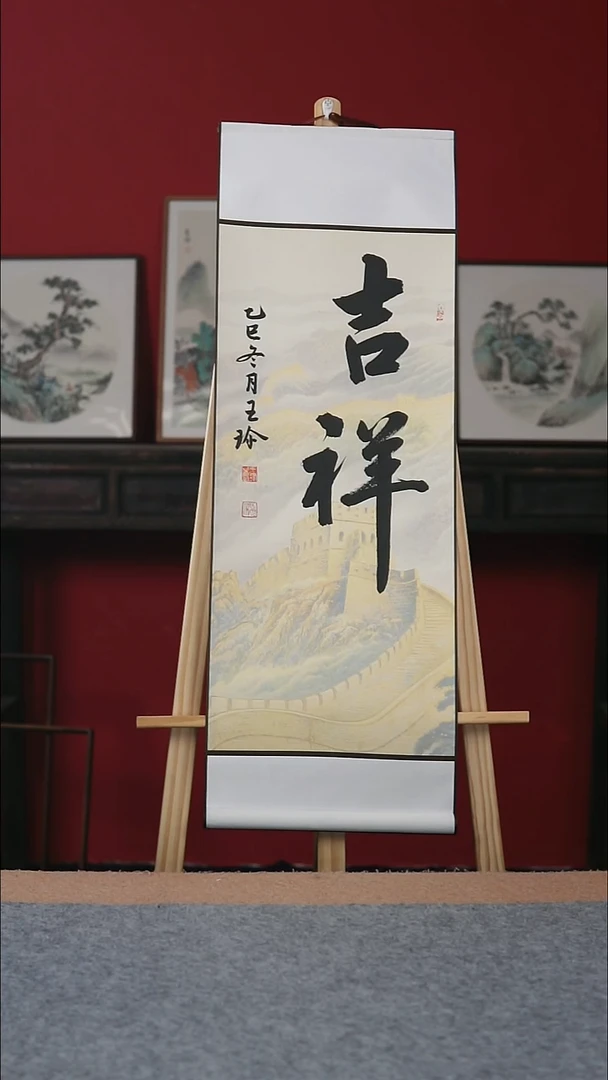 吉祥
乙巳冬月王玲